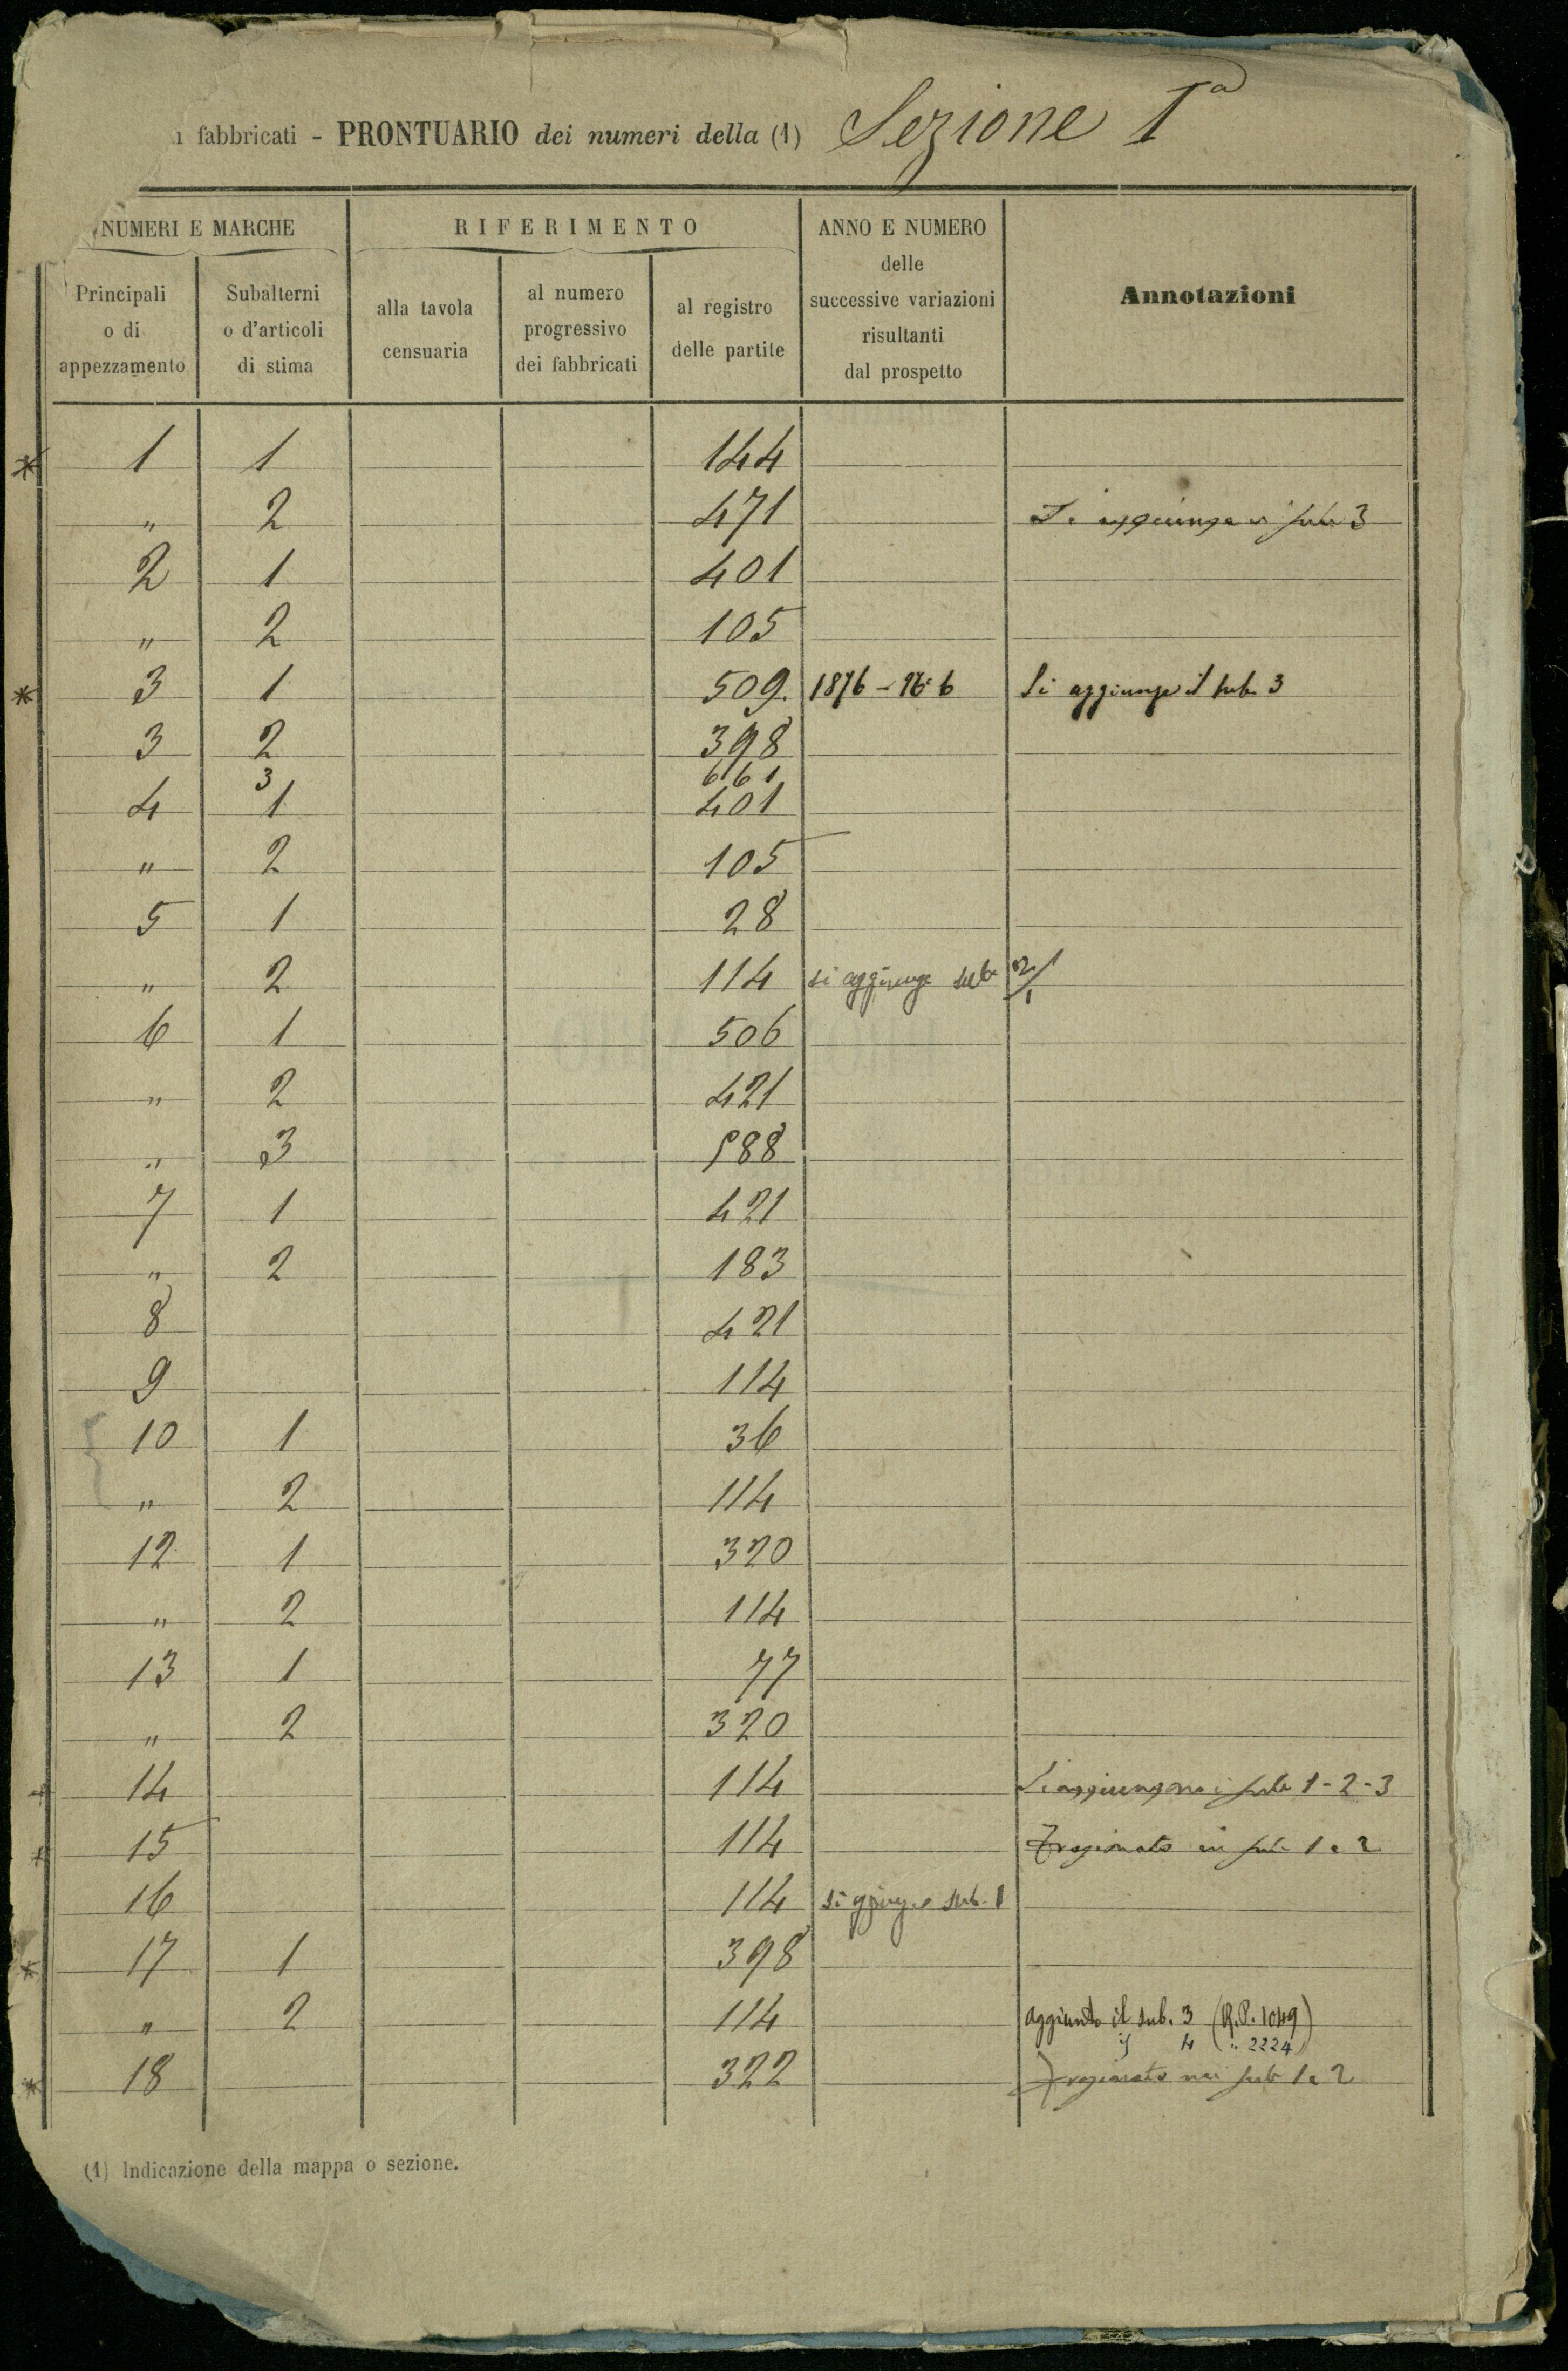 fabbricati - PRONTUARIO dei numeri della (1) Sezione Iª
NUMERI E MARCHE
RIFERIMENTO
ANNO E NUMERO
delle
successive variazioni
risultanti
dal prospetto
Annotazioni
Principali
o di
appezzamento
Subalterni
o d'articoli
di stima
alla tavola
censuaria
al numero
progressivo
dei fabbricati
al registro
delle partite
* 1 1 144
" 2 471 Si aggiunge il sub 3
2 1 401
" 2 105
* 3 1 509. 1876 - N° 6 Si aggiunge il sub. 3
3 2 398
3 661
4 1 401
" 2 105
5 1 28
" 2 114 si aggiunge sub 2/1
6 1 506
" 2 421
" 3 588
7 1 421
" 2 183
8 421
9 114
10 1 36
" 2 114
12 1 320
" 2 114
13 1 77
" 2 320
14 114 Si aggiungono i sub 1-2-3
15 114 Frazionato in sub 1 e 2
16 114 si aggiunge sub. 1
* 17 1 398
" 2 114 aggiunto il sub. 3 (R.P. 1049)
4 (" 2224)
* 18 322 Frazionato nei sub 1 e 2
(1) Indicazione della mappa o sezione.